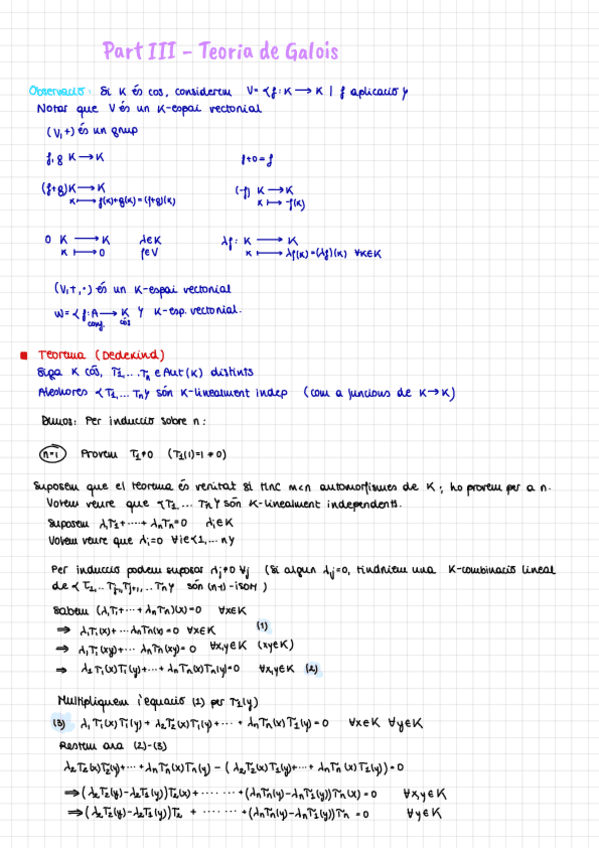 Part III - Teoria de Galois
Observació: Si K és cos, considerem V= {f: K → K | f aplicació}
Notar que V és un K-espai vectorial
(V,+) és un grup
f, g K → K f+0=f
(f+g)K → K (-f) K → K
x ↦ f(x)+g(x)=(f+g)(x) x ↦ -f(x)
0 K → K λ∈K λf: K → K
x ↦ 0 f∈V x ↦ λf(x)=(λf)(x) ∀x∈K
(V,+,·) és un K-espai vectorial
W={f:A → K} K-esp. vectorial.
conj. cos
Teorema (Dedekind)
Siga K cos, T1,...Tn ∈ Aut(K) distints
Aleshores {T1,...Tn} són K-linealment indep (com a funcions de K→K)
Dmos: Per inducció sobre n:
n=1 Provem T1≠0 (T1(1)=1≠0)
Suposem que el teorema és veritat si tinc m<n automorfismes de K; ho provem per a n.
Volem veure que {T1,... Tn} són K-linealment independents.
Suposem λ1T1+····+λnTn=0 λi∈K
Volem veure que λi=0 ∀i∈{1,...n}
Per inducció podem suposar λj≠0 ∀j (Si algun λj=0, tindríem una K-combinació lineal
de {T1,..Tj-1,Tj+1,..Tn} són (n-1)-isom)
Sabem (λ1T1+···+λnTn)(x)=0 ∀x∈K
⇒ λ1T1(x)+···λnTn(x)=0 ∀x∈K (1)
⇒ λ1T1(xy)+···λnTn(xy)=0 ∀x,y∈K (xy∈K)
⇒ λ1T1(x)T1(y)+···+λnTn(x)Tn(y)=0 ∀x,y∈K (2)
Multipliquem l'equació (1) per T1(y)
(3) λ1T1(x)T1(y)+λ2T2(x)T1(y)+···+λnTn(x)T1(y)=0 ∀x∈K ∀y∈K
Restem ara (2)-(3)
λ2T2(x)T2(y)+···+λnTn(x)Tn(y)-(λ2T2(x)T1(y)+···+λnTn(x)T1(y))=0
⇒(λ2T2(y)-λ2T1(y))T2(x)+······+(λnTn(y)-λnT1(y))Tn(x)=0 ∀x,y∈K
⇒(λ2T2(y)-λ2T1(y))T2 +······+(λnTn(y)-λnT1(y))Tn =0 ∀y∈K